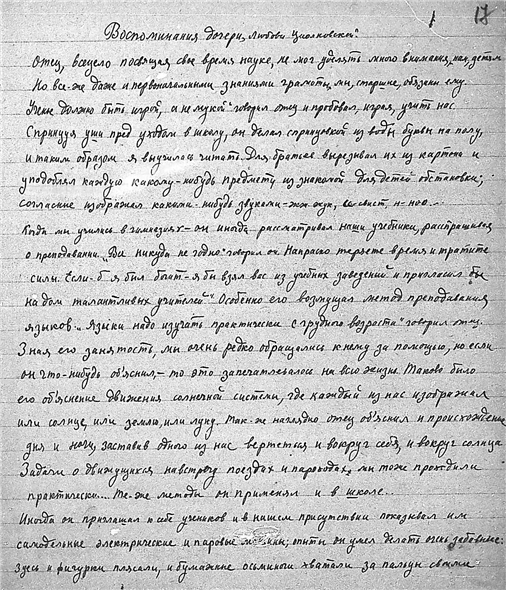 1 17
Воспоминания дочери, Любови Циолковской.
Отец, всецело посвящая свое время науке, не мог уделять много внимания, нам, детям
Но все-же даже и первоначальными знаниями грамоты, мы, старшие, обязаны ему.
Ученье должно быть игрой, а не мукой" говорил отец и пробовал, играя, учить нас.
Спринцуя уши пред уходом в школу, он делал спринцовкой из воды буквы на полу,
и таким образом я выучилась читать. Для братьев вырезывал их из картона и
уподоблял каждую какому-нибудь предмету из знакомой для детей обстановки;
согласные изображал какими-нибудь звуками - ж-ж жук, с-с свист, н-ноо...
Когда мы учились в гимназиях - он иногда рассматривал наши учебники, расспрашивал
о преподавании. „Все никуда не годно" говорил он. Напрасно теряете время и тратите
силы. Если-б я был богат - я бы взял вас из учебных заведений и пригласил бы
на дом талантливых учителей" Особенно его возмущал метод преподавания
языков. „Языки надо изучать практически с грудного возраста" говорил отец.
Зная его занятость, мы очень редко обращались к нему за помощью, но если
он что-нибудь об'яснил, - то это запечатлевалось на всю жизнь. Таково было
его об'яснение движения солнечной системы, где каждый из нас изображал
или солнце, или землю, или луну. Так-же наглядно отец об'яснил и происхождение
дня и ночи, заставив одного из нас вертеться и вокруг себя, и вокруг солнца
Задачи о движущихся навстречу поездах и пароходах, мы тоже проходили
практически... Те-же методы он применял и в школе...
Иногда он приглашал к себе учеников и в нашем присутствии показывал им
самодельные электрические и паровые машины; опыты он умел делать очень забавные:
здесь и фигурки плясали, и бумажные осьминоги хватали за пальцы своими